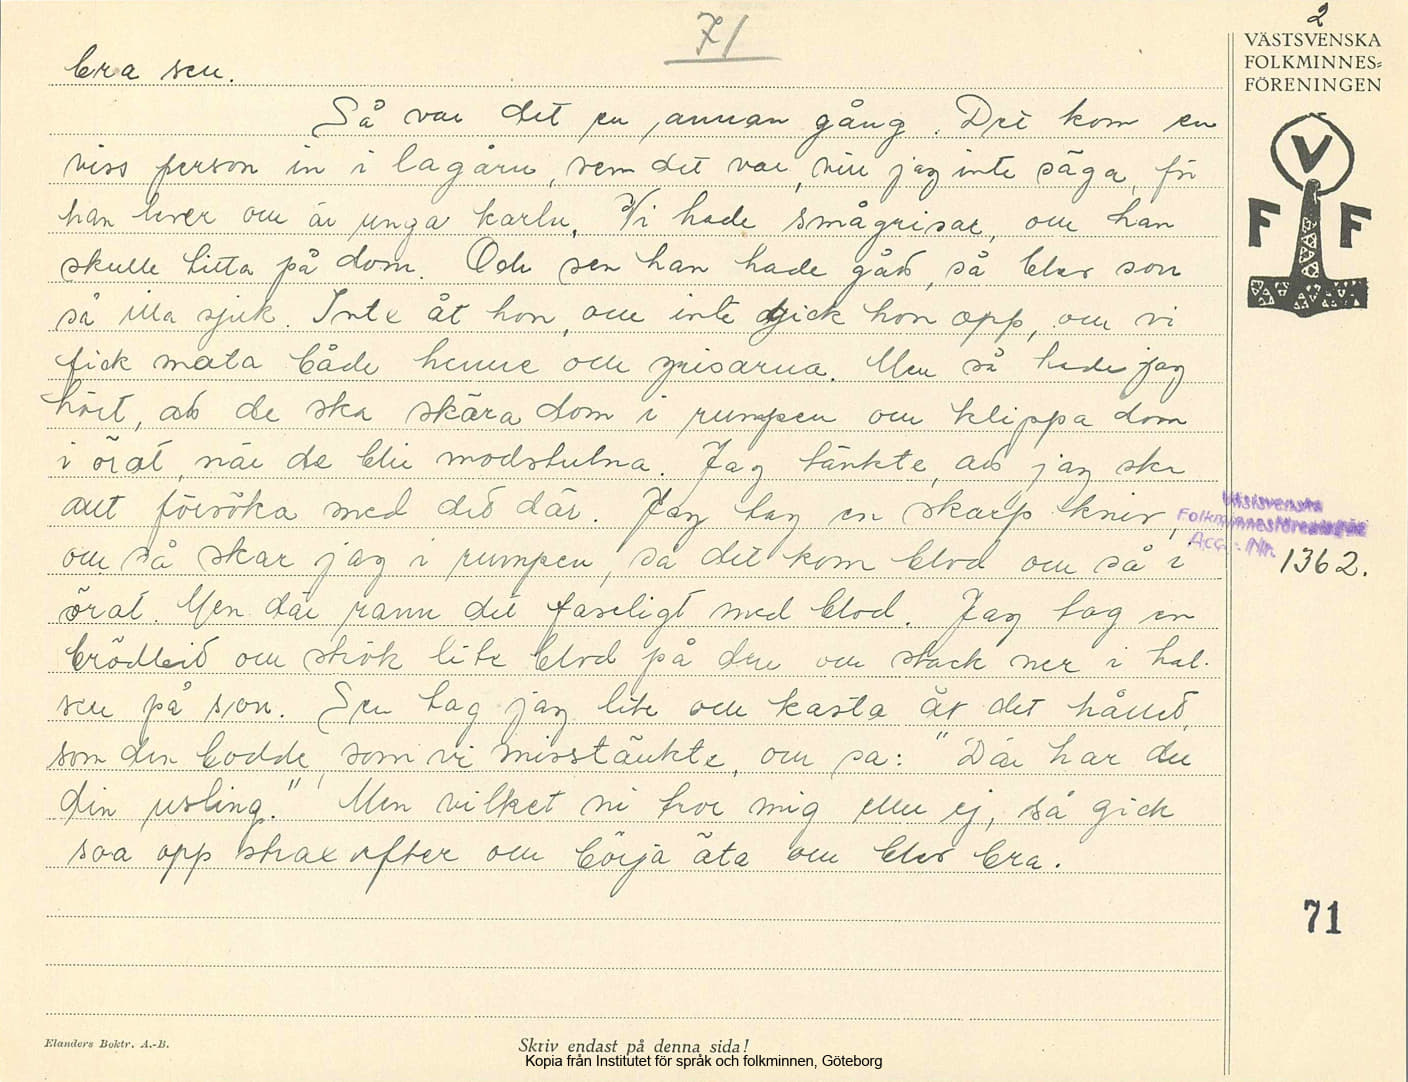 71
2
VÄSTSVENSKA
FOLKMINNES=
FÖRENINGEN
V
F F
bra sen.
Så var det en annan gång. Det kom en
viss person in i lagårn, vem det var, vill jag inte säga, för
han lever ou är unga karln. Vi hade smågrisar, ou han
skulle titta på dom. Och sen han hade gåd, så blev son
så illa sjuk. Inte åt hon, ou inte gick hon opp, ou vi
fick mata både henne ou grisarna. Men så hade jag
hört, ad de ska skära dom i rumpen ou klippa dom
i örat, när de blir modstulna. Jag tänkte, ad jag ska
allt försöka med ded där. Jag tag en skarp kniv,
ou så skar jag i rumpen, så det kom blod ou så i
örat. Men där rann det faseligt med blod. Jag tog en
brödbid ou strök lite blod på den ou stack ner i hal-
sen på son. Sen tag jag lite ou kasta åt det hålled,
som den bodde, som vi misstänkte, ou sa: "Där har du
din usling." Men vilket ni tror mig eller ej, så gick
soa opp strax efter ou börja äta ou blev bra.
Västsvenska
Folkminnesföreningen
Acc.-Nr. 1362.
71
Elanders Boktr. A.-B.
Skriv endast på denna sida!
Kopia från Institutet för språk och folkminnen, Göteborg